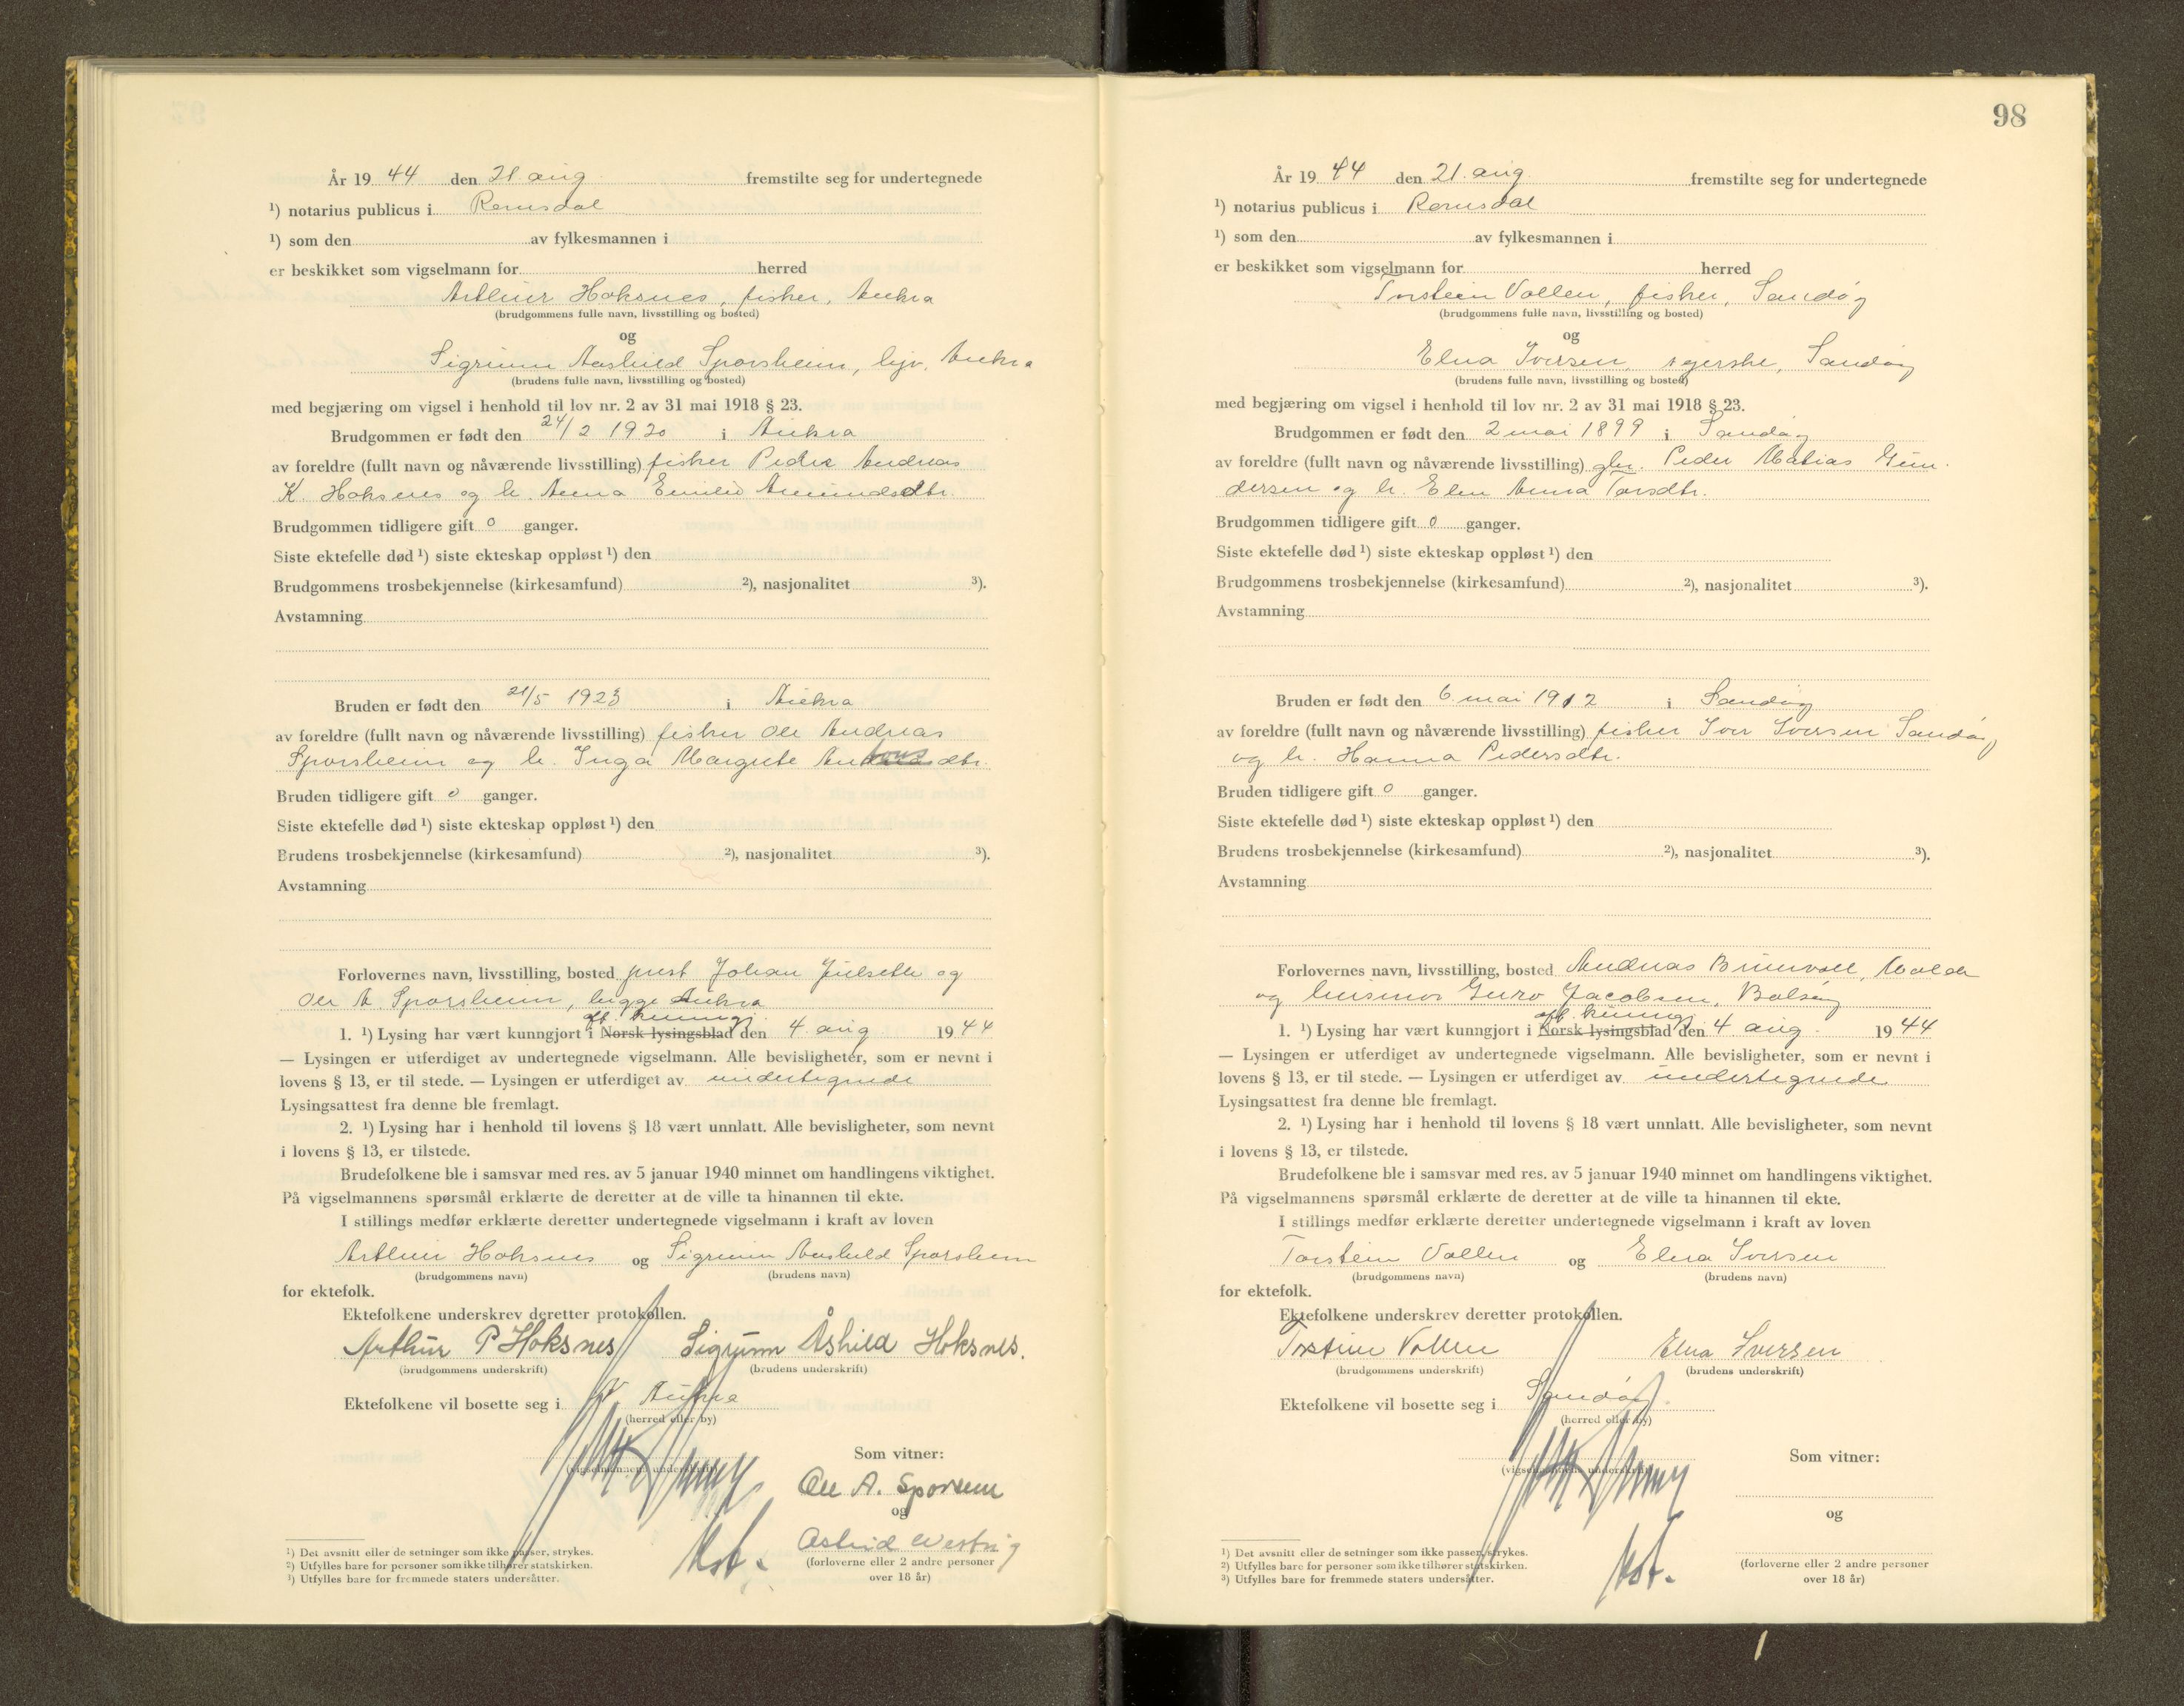 År 19 44 den 21 aug. fremstilte seg for undertegnede
¹) notarius publicus i Romsdal
¹) som den av fylkesmannen i
er beskikket som vigselmann for herred
Arthur Hoksnes, fisker, Aukra
(brudgommens fulle navn, livsstilling og bosted)
og
Sigrunn Aashild Sporsheim, hjv. Aukra
(brudens fulle navn, livsstilling og bosted)
med begjæring om vigsel i henhold til lov nr. 2 av 31 mai 1918 § 23.
Brudgommen er født den 24/2 1920 i Aukra
av foreldre (fullt navn og nåværende livsstilling) fisker Peder Andreas
K. Hoksnes og h. Anna Emilie Amundsdtr.
Brudgommen tidligere gift 0 ganger.
Siste ektefelle død ¹) siste ekteskap oppløst ¹) den
Brudgommens trosbekjennelse (kirkesamfund) ²), nasjonalitet ³).
Avstamning
Bruden er født den 21/5 1923 i Aukra
av foreldre (fullt navn og nåværende livsstilling) fisker Ole Andreas
Sporsheim og h. Inga Margrete dtr.
Bruden tidligere gift 0 ganger.
Siste ektefelle død ¹) siste ekteskap oppløst ¹) den
Brudens trosbekjennelse (kirkesamfund) ²), nasjonalitet ³).
Avstamning
Forlovernes navn, livsstilling, bosted prest Johan Julseth og
Ole A. Sporsheim, begge Aukra
off. kunngj.
1. ¹) Lysing har vært kunngjort i Norsk lysingsblad den 4. aug 19 44
— Lysingen er utferdiget av undertegnede vigselmann. Alle bevisligheter, som er nevnt i
lovens § 13, er til stede. — Lysingen er utferdiget av undertegnede
Lysingsattest fra denne ble fremlagt.
2. ¹) Lysing har i henhold til lovens § 18 vært unnlatt. Alle bevisligheter, som nevnt
i lovens § 13, er tilstede.
Brudefolkene ble i samsvar med res. av 5 januar 1940 minnet om handlingens viktighet.
På vigselmannens spørsmål erklærte de deretter at de ville ta hinannen til ekte.
I stillings medfør erklærte deretter undertegnede vigselmann i kraft av loven
Arthur Hoksnes og Sigrunn Aashild Sporsheim
(brudgommens navn) (brudens navn)
for ektefolk.
Ektefolkene underskrev deretter protokollen.
Arthur P Hoksnes Sigrunn Åshild Hoksnes.
(brudgommens underskrift) (brudens underskrift)
Ektefolkene vil bosette seg i Aukra
(herred eller by)
Som vitner:
(vigselmannens underskrift)
Ole A. Sporsem
og
Astrid Westvig
(forloverne eller 2 andre personer
over 18 år)
¹) Det avsnitt eller de setninger som ikke passer, strykes.
²) Utfylles bare for personer som ikke tilhører statskirken.
³) Utfylles bare for fremmede staters undersåtter.
98
År 19 44 den 21. aug. fremstilte seg for undertegnede
¹) notarius publicus i Romsdal
¹) som den av fylkesmannen i
er beskikket som vigselmann for herred
Torstein Vollen, fisker, Sandøy
(brudgommens fulle navn, livsstilling og bosted)
og
Elna Iversen, syerske, Sandøy
(brudens fulle navn, livsstilling og bosted)
med begjæring om vigsel i henhold til lov nr. 2 av 31 mai 1918 § 23.
Brudgommen er født den 2 mai 1899 i Sandøy
av foreldre (fullt navn og nåværende livsstilling) gbr. Peder Matias Gun-
dersen og h. Elen Anna Torsdtr.
Brudgommen tidligere gift 0 ganger.
Siste ektefelle død ¹) siste ekteskap oppløst ¹) den
Brudgommens trosbekjennelse (kirkesamfund) ²), nasjonalitet ³).
Avstamning
Bruden er født den 6. mai 1912 i Sandøy
av foreldre (fullt navn og nåværende livsstilling) fisker Iver Iversen Sandøy
og h. Hanna Pedersdtr.
Bruden tidligere gift 0 ganger.
Siste ektefelle død ¹) siste ekteskap oppløst ¹) den
Brudens trosbekjennelse (kirkesamfund) ²), nasjonalitet ³).
Avstamning
Forlovernes navn, livsstilling, bosted Andreas Brunvoll, Molde
og husmor Guro Jacobsen, Bolsøy
off. kunngj.
1. ¹) Lysing har vært kunngjort i Norsk lysingsblad den 4 aug. 19 44
— Lysingen er utferdiget av undertegnede vigselmann. Alle bevisligheter, som er nevnt i
lovens § 13, er til stede. — Lysingen er utferdiget av undertegnede
Lysingsattest fra denne ble fremlagt.
2. ¹) Lysing har i henhold til lovens § 18 vært unnlatt. Alle bevisligheter, som nevnt
i lovens § 13, er tilstede.
Brudefolkene ble i samsvar med res. av 5 januar 1940 minnet om handlingens viktighet.
På vigselmannens spørsmål erklærte de deretter at de ville ta hinannen til ekte.
I stillings medfør erklærte deretter undertegnede vigselmann i kraft av loven
Torstein Vollen og Elna Iversen
(brudgommens navn) (brudens navn)
for ektefolk.
Ektefolkene underskrev deretter protokollen.
Torstein Vollen Elna Iversen
(brudgommens underskrift) (brudens underskrift)
Ektefolkene vil bosette seg i Sandøy
(herred eller by)
Som vitner:
(vigselmannens underskrift)
og
(forloverne eller 2 andre personer
over 18 år)
¹) Det avsnitt eller de setninger som ikke passer, strykes.
²) Utfylles bare for personer som ikke tilhører statskirken.
³) Utfylles bare for fremmede staters undersåtter.